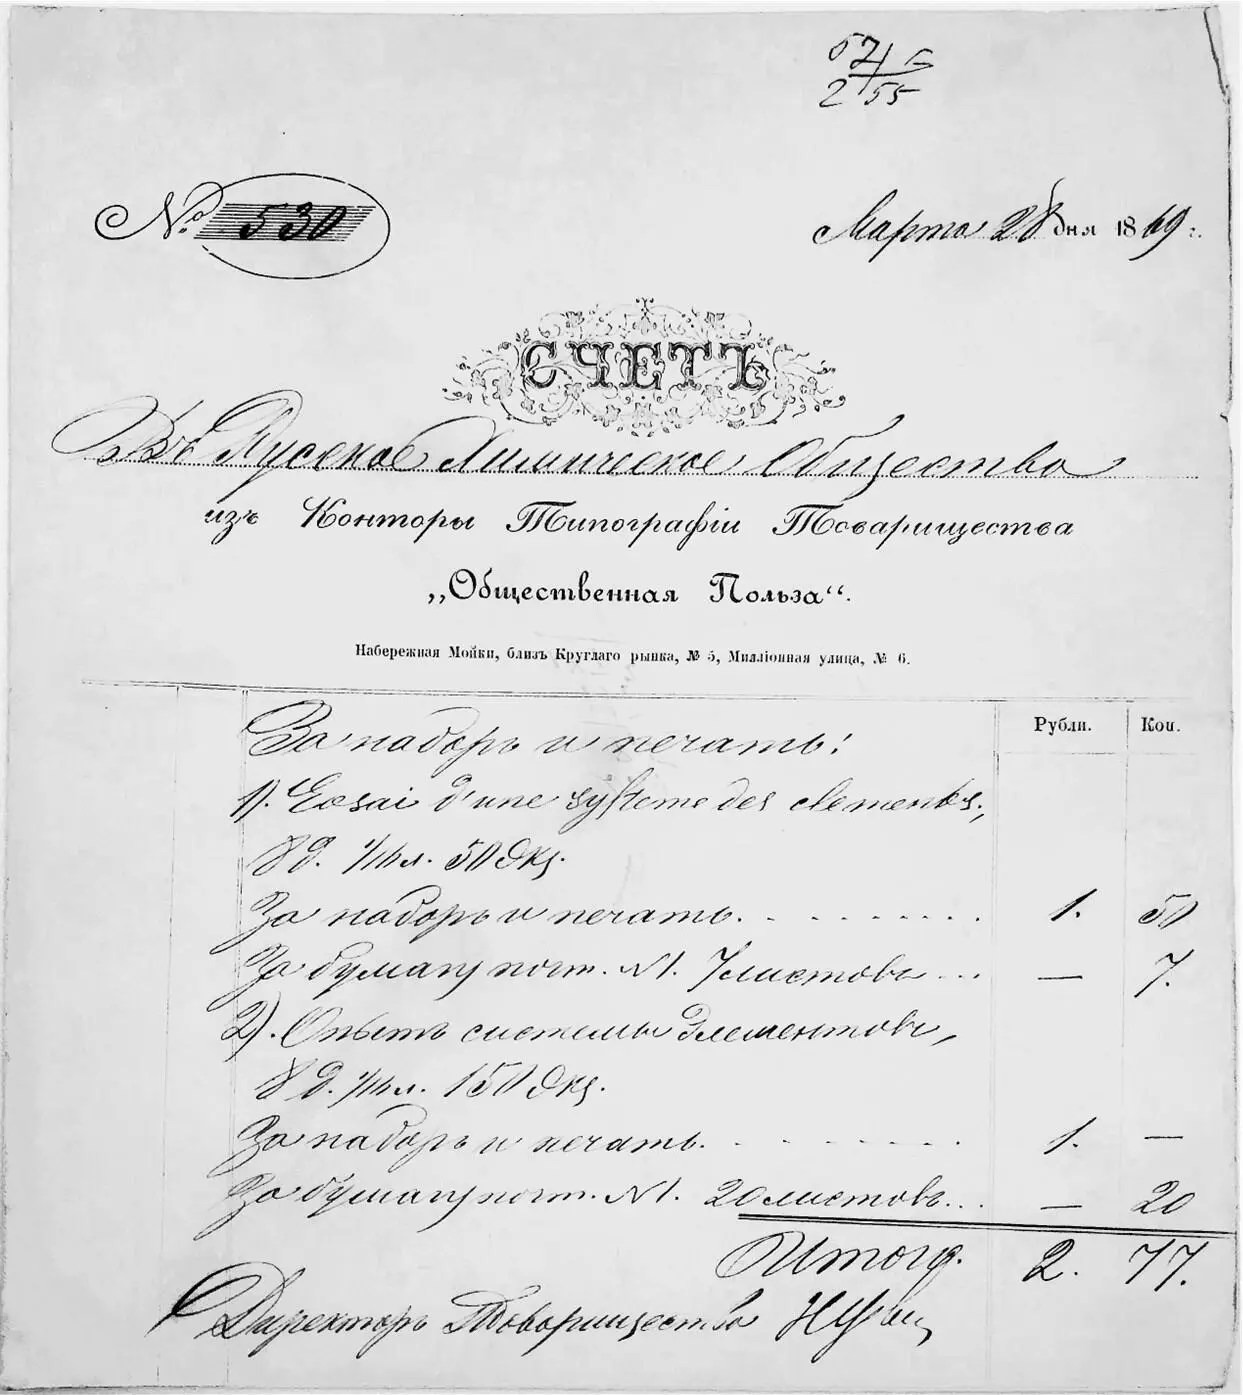 № 530
Марта 28 дня 1869 г.
СЧЕТЪ
Въ Русское Химическое Общество
изъ Конторы Типографіи Товарищества
„Общественная Польза“.
Набережная Мойки, близъ Круглаго рынка, № 5, Милліонная улица, № 6.
Рубли. Коп.
За наборъ и печать:
1). Essai d'une système des elements,
8 д. 1/16 л. 50 экз.
За наборъ и печать. 1. 50
За бумагу почт. №1. 7 листовъ — 7.
2). Опытъ системы элементовъ,
8 д. 1/16 л. 150 экз.
За наборъ и печать. 1. —
За бумагу почт. №1. 20 листовъ — 20
Итого. 2. 77.
Директоръ Товарищества